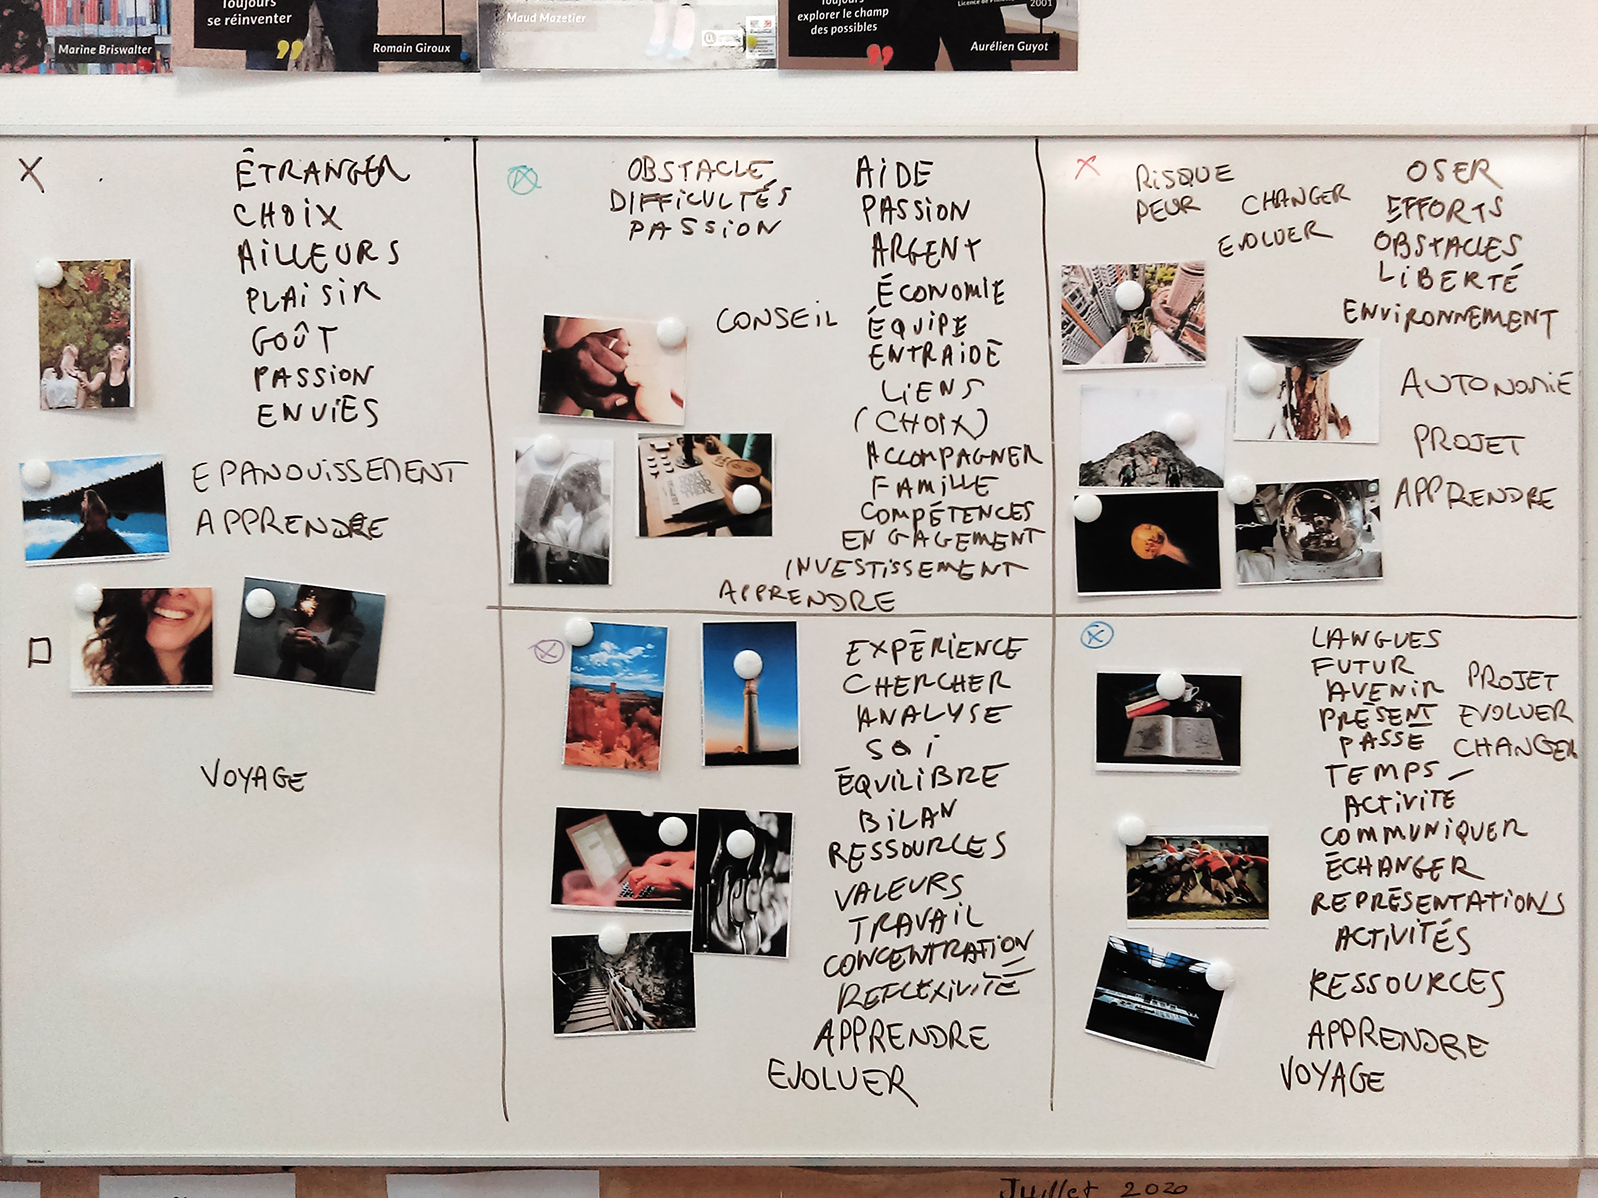 Toujours
se réinventer
Marine Briswalter
Romain Giroux
Maud Mazetier
Toujours
explorer le champ
des possibles
2001
Aurélien Guyot
X
ÉTRANGER
CHOIX
AILLEURS
PLAISIR
GOÛT
PASSION
ENVIES
EPANOUISSEMENT
APPRENDRE
VOYAGE
OBSTACLE
DIFFICULTÉS
PASSION
CONSEIL
AIDE
PASSION
ARGENT
ÉCONOMIE
ÉQUIPE
ENTRAIDE
LIENS
(CHOIX)
ACCOMPAGNER
FAMILLE
COMPÉTENCES
ENGAGEMENT
INVESTISSEMENT
APPRENDRE
X
RISQUE
PEUR
CHANGER
EVOLUER
OSER
EFFORTS
OBSTACLES
LIBERTÉ
ENVIRONNEMENT
AUTONOMIE
PROJET
APPRENDRE
EXPÉRIENCE
CHERCHER
ANALYSE
SOI
ÉQUILIBRE
BILAN
RESSOURCES
VALEURS
TRAVAIL
CONCENTRATION
REFLEXIVITÉ
APPRENDRE
EVOLUER
LANGUES
FUTUR
AVENIR
PRÉSENT
PASSÉ
TEMPS –
ACTIVITÉ
COMMUNIQUER
ÉCHANGER
REPRÉSENTATIONS
ACTIVITÉS
RESSOURCES
APPRENDRE
VOYAGE
PROJET
EVOLUER
CHANGER
Juillet 2020